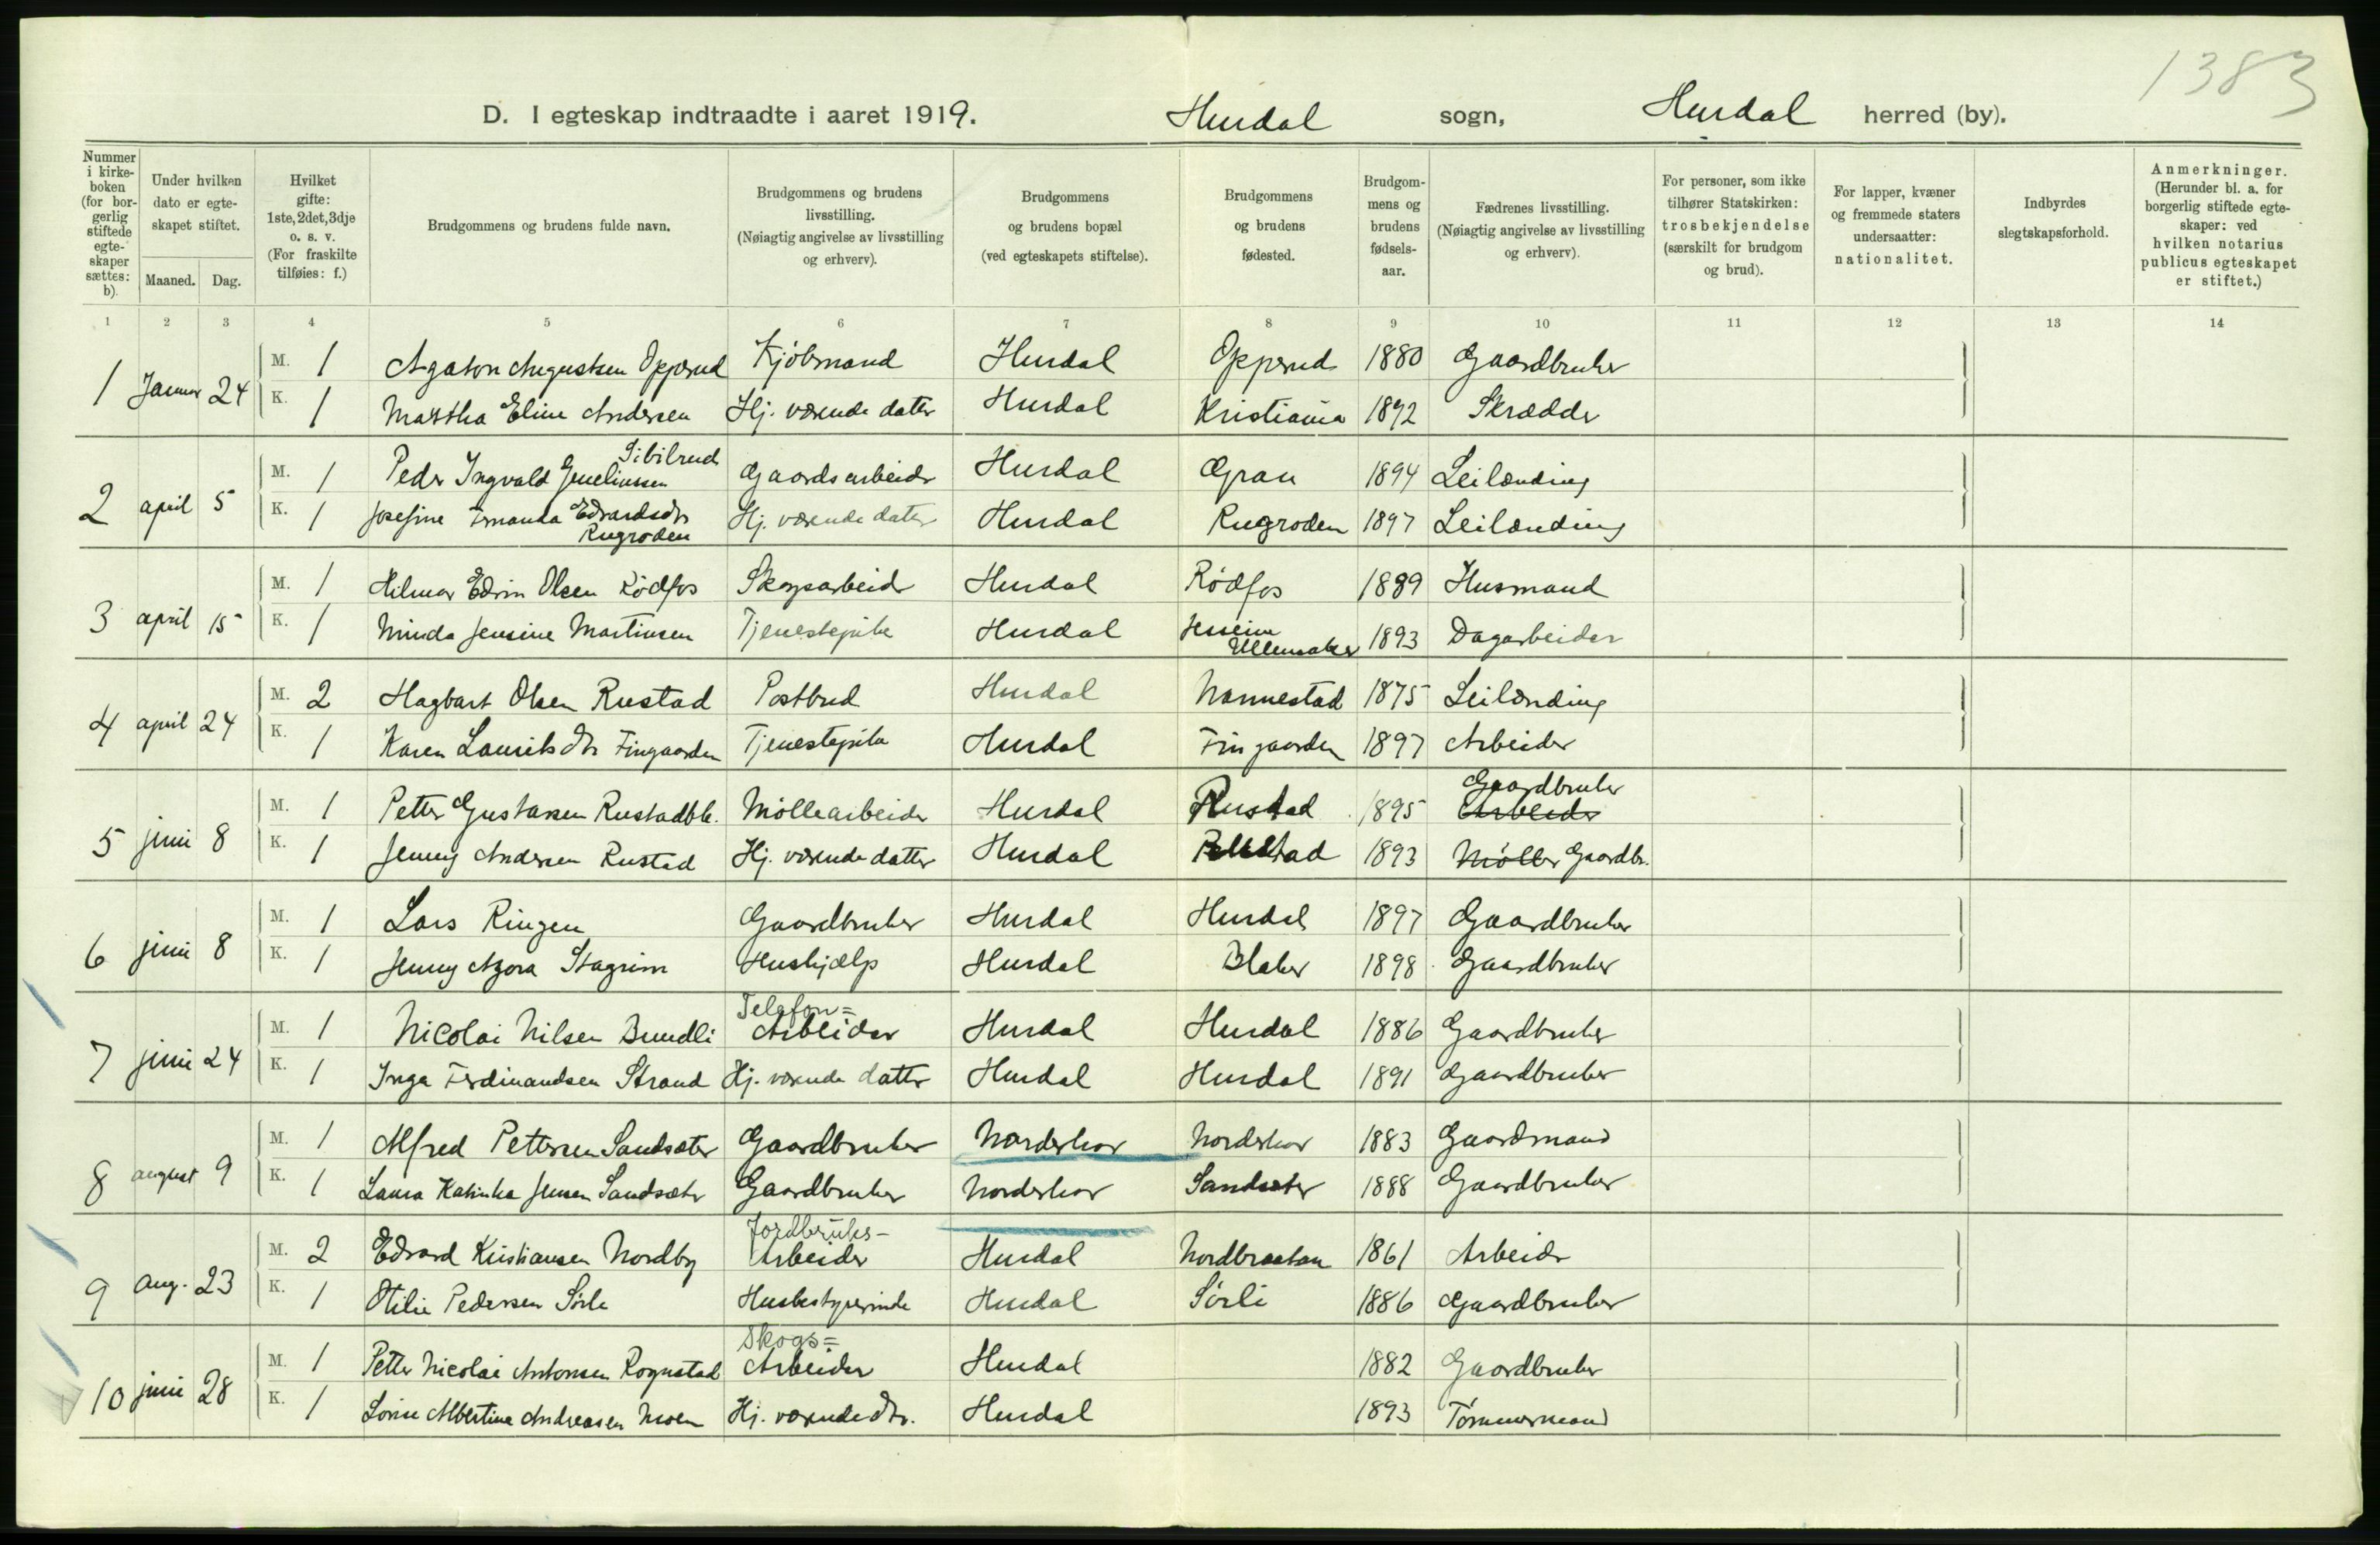 1383
D. I egteskap indtraadte i aaret 1919. Hurdal sogn, Hurdal herred (by).
Nummer i kirke-boken (for bor-gerlig stiftede egte-skaper sættes: b).
Under hvilken dato er egte-skapet stiftet.
Maaned. Dag.
Hvilket gifte: 1ste, 2det, 3dje o. s. v. (For fraskilte tilføies: f.)
Brudgommens og brudens fulde navn.
Brudgommens og brudens livsstilling. (Nøiagtig angivelse av livsstilling og erhverv).
Brudgommens og brudens bopæl (ved egteskapets stiftelse).
Brudgommens og brudens fødested.
Brudgom-mens og brudens fødsels-aar.
Fædrenes livsstilling. (Nøiagtig angivelse av livsstilling og erhverv).
For personer, som ikke tilhører Statskirken: trosbekjendelse (særskilt for brudgom og brud).
For lapper, kvæner og fremmede staters undersaatter: nationalitet.
Indbyrdes slegtskapsforhold.
Anmerkninger. (Herunder bl. a. for borgerlig stiftede egte-skaper: ved hvilken notarius publicus egteskapet er stiftet.)
1 2 3 4 5 6 7 8 9 10 11 12 13 14
1 Januar 24 M. 1 Agaton Augustsen Opperud Kjøbmand Hurdal Opperud 1880 Gaardbruker
K. 1 Martha Eline Andersen Hj. værende datter Hurdal Kristiania 1892 Skrædder
2 april 5 M. 1 Peder Ingvald Sibilrud Gaardsarbeider Hurdal Gran 1894 Leilænding
K. 1 Josefine Amanda Edvardsdtr Rugroden Hj. værende datter Hurdal Rugroden 1897 Leilænding
3 april 15 M. 1 Hilmar Edvin Olsen Rödfos Skogsarbeider Hurdal Rödfos 1889 Husmand
K. 1 Minda Jensine Martinsen Tjenestepike Hurdal Ullensaker 1893 Dagarbeider
4 april 24 M. 2 Hagbart Olsen Rustad Postbud Hurdal Nannestad 1875 Leilænding
K. 1 Karen Lauritsdtr Fingaarden Tjenestepike Hurdal Fingaarden 1897 Arbeider
5 juni 8 M. 1 Petter Gustavsen Rustadbk. Möllearbeider Hurdal Rustad 1895 Gaardbruker Arbeider
K. 1 Jenny Andersen Rustad Hj. værende datter Hurdal Rustad 1893 Möller Gaardbr.
6 juni 8 M. 1 Lars Ringen Gaardbruker Hurdal Hurdal 1897 Gaardbruker
K. 1 Jenny Agora Stagrim Hushjælp Hurdal Blaker 1898 Gaardbruker
7 juni 24 M. 1 Nicolai Nilsen Bundli Telefon= Arbeider Hurdal Hurdal 1886 Gaardbruker
K. 1 Inga Ferdinandsen Strand Hj. værende datter Hurdal Hurdal 1891 Gaardbruker
8 august 9 M. 1 Alfred Pettersen Sandsæter Gaardbruker Norderhov Norderhov 1883 Gaardmand
K. 1 Laura Katinka Jensen Sandsæter Gaardbruker Norderhov Sandsæter 1888 Gaardbruker
9 aug. 23 M. 2 Edvard Kristiansen Nordby Jordbruks- Arbeider Hurdal Nordbraatan 1861 Arbeider
K. 1 Otilie Pedersen Sörli Husbestyrerinde Hurdal Sörli 1886 Gaardbruker
10 juni 28 M. 1 Petter Nicolai Antonsen Rognstad Skogs= Arbeider Hurdal 1882 Gaardbruker
K. 1 Lovise Albertine Andreasen Moen Hj. værende dtr. Hurdal 1893 Tömmermand